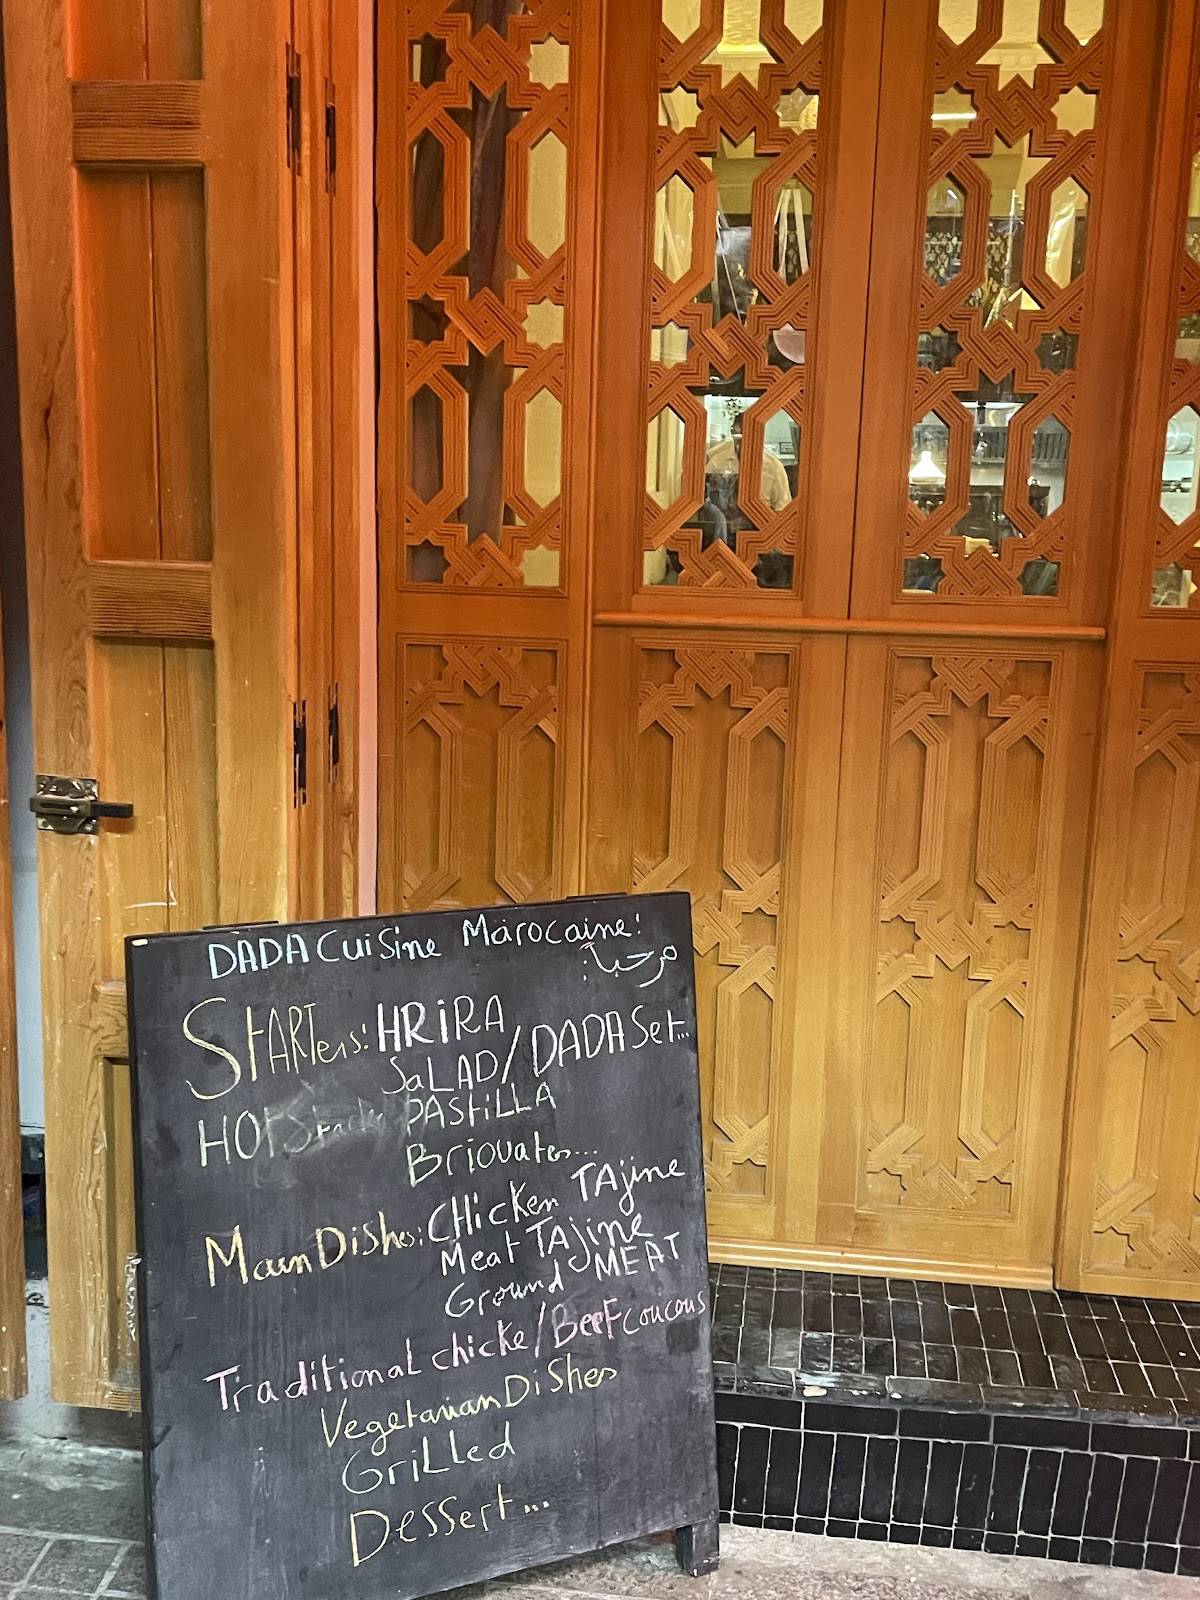 DADA Cuisine Marocaine!
مرحبا:
STARTers: HRiRA
SaLAD/DADA Set...
HOT Starters PASTiLLA
Briouates...
Main Dishes: CHicken TAjine
Meat TAjine
Ground MEAT
Traditional chicke/BeeF coucous
Vegetarian DiShes
GriLLed
Dessert...